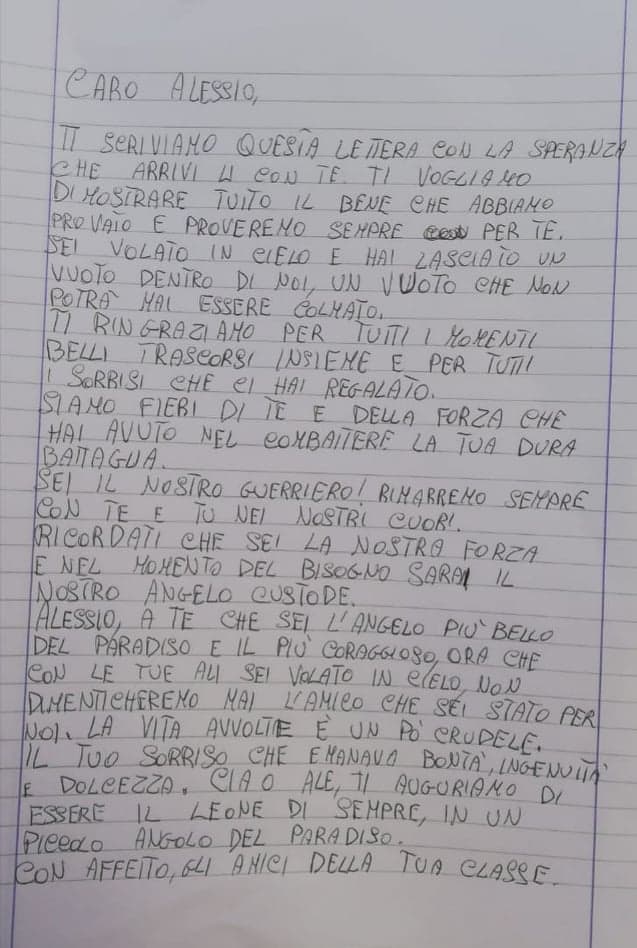 CARO ALESSIO,
TI SCRIVIAMO QUESTA LETTERA CON LA SPERANZA
CHE ARRIVI LI CON TE. TI VOGLIAMO
DIMOSTRARE TUTTO IL BENE CHE ABBIAMO
PROVATO E PROVEREMO SEMPRE PER TE.
SEI VOLATO IN CIELO E HAI LASCIATO UN
VUOTO DENTRO DI NOI, UN VUOTO CHE NON
POTRÀ MAI ESSERE COLMATO.
TI RINGRAZIAMO PER TUTTI I MOMENTI
BELLI TRASCORSI INSIEME E PER TUTTI
I SORRISI CHE CI HAI REGALATO.
SIAMO FIERI DI TE E DELLA FORZA CHE
HAI AVUTO NEL COMBATTERE LA TUA DURA
BATTAGLIA.
SEI IL NOSTRO GUERRIERO! RIMARREMO SEMPRE
CON TE E TU NEI NOSTRI CUORI.
RICORDATI CHE SEI LA NOSTRA FORZA
E NEL MOMENTO DEL BISOGNO SARAI IL
NOSTRO ANGELO CUSTODE.
ALESSIO, A TE CHE SEI L'ANGELO PIÙ BELLO
DEL PARADISO E IL PIÙ CORAGGIOSO, ORA CHE
CON LE TUE ALI SEI VOLATO IN CIELO, NON
DIMENTICHEREMO MAI L'AMICO CHE SEI STATO PER
NOI. LA VITA AVVOLTE È UN PÒ CRUDELE.
IL TUO SORRISO CHE EMANAVA BONTÀ, INGENUITÀ
E DOLCEZZA. CIAO ALE, TI AUGURIAMO DI
ESSERE IL LEONE DI SEMPRE, IN UN
PICCOLO ANGOLO DEL PARADISO.
CON AFFETTO, GLI AMICI DELLA TUA CLASSE.